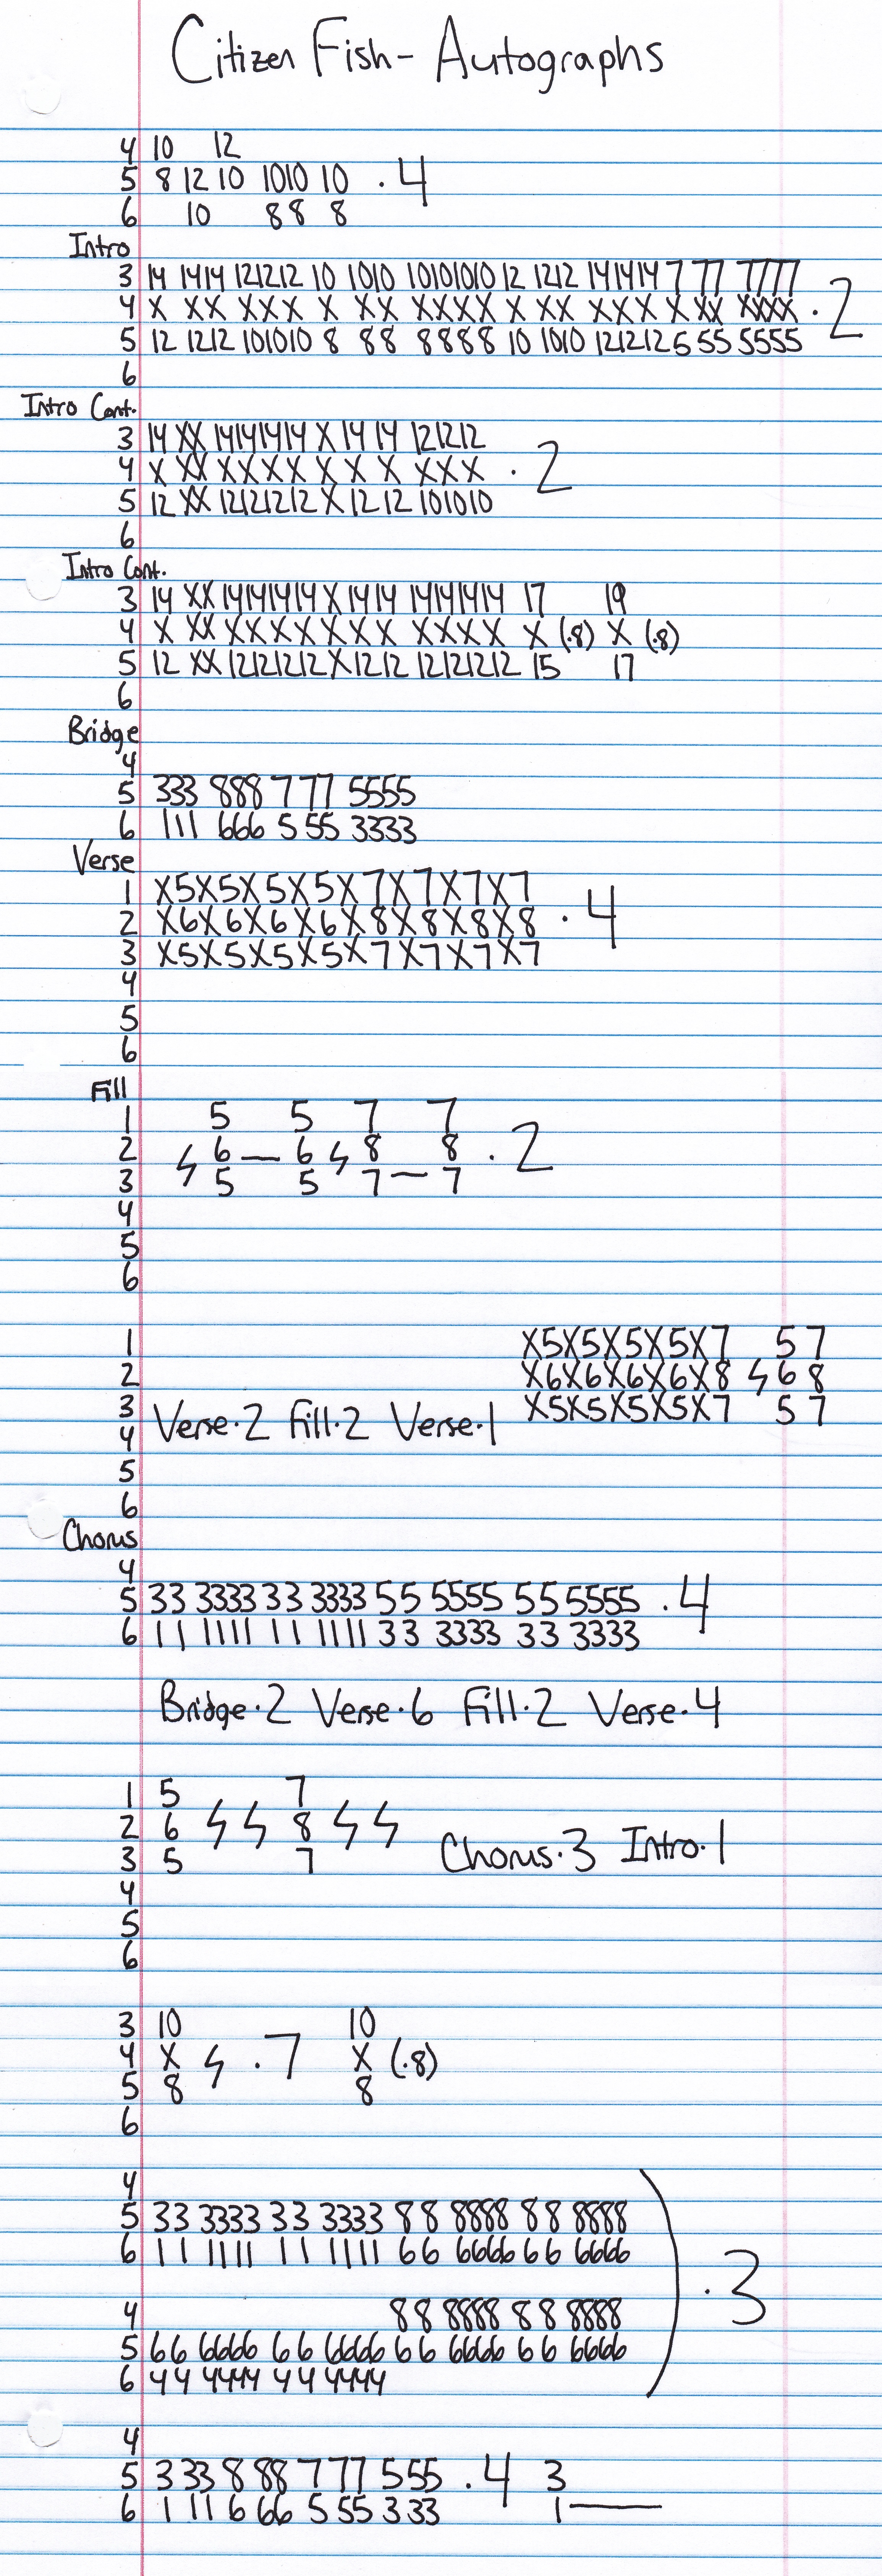 Citizen Fish - Autographs
4 10 12
5 8 12 10 1010 10 .4
6 10 88 8
Intro
3 14 1414 121212 10 1010 10101010 12 1212 141414 7 77 7777
4 X XX XXX X XX XXXX X XX XXX X XX XXXX .2
5 12 1212 101010 8 88 8888 10 1010 121212 5 55 5555
6
Intro Cont.
3 14 XX 14141414 X 14 14 121212
4 X XX XXXX X X X XXX .2
5 12 XX 12121212 X 12 12 101010
6
Intro Cont.
3 14 XX 14141414 X 1414 14141414 17 19
4 X XX XXXX X XX XXXX X (.8) X (.8)
5 12 XX 12121212 X 1212 12121212 15 17
6
Bridge
4
5 333 888 777 5555
6 111 666 555 3333
Verse
1 X5X5X5X5X7X7X7X7
2 X6X6X6X6X8X8X8X8 .4
3 X5X5X5X5X7X7X7X7
4
5
6
Fill
1 5 5 7 7
2 6 — 6 8 8 .2
3 5 5 7 — 7
4
5
6
1 X5X5X5X5X7 5 7
2 X6X6X6X6X8 6 8
3 Verse.2 Fill.2 Verse.1 X5X5X5X5X7 5 7
4
5
6
Chorus
4
5 33 3333 33 3333 55 5555 55 5555 .4
6 11 1111 11 1111 33 3333 33 3333
Bridge.2 Verse.6 Fill.2 Verse.4
1 5 7
2 6 8 Chorus.3 Intro.1
3 5 7
4
5
6
3 10 10
4 X .7 X (.8)
5 8 8
6
4
5 33 3333 33 3333 88 8888 88 8888
6 11 1111 11 1111 66 6666 66 6666
.3
4 88 8888 88 8888
5 66 6666 66 6666 66 6666 66 6666
6 44 4444 44 4444
4
5 3 33 8 88 7 77 5 55 .4 3
6 1 11 6 66 5 55 3 33 1—